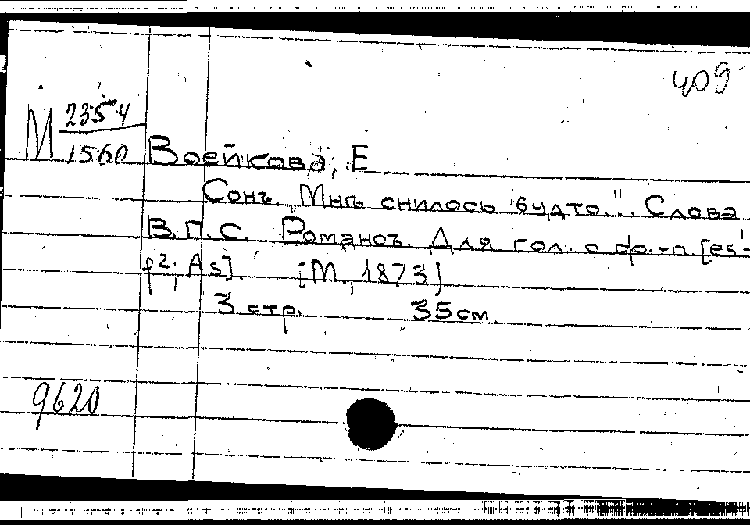 409
М 2354
1560
Воейкова, Е
Сонъ. "Мнѣ снилось будто.". Слова
В.П.С. Романсъ Для гол. с ф.-п. [es¹-
f²; As]. [М., 1873]
3 стр. 35 см.
9620